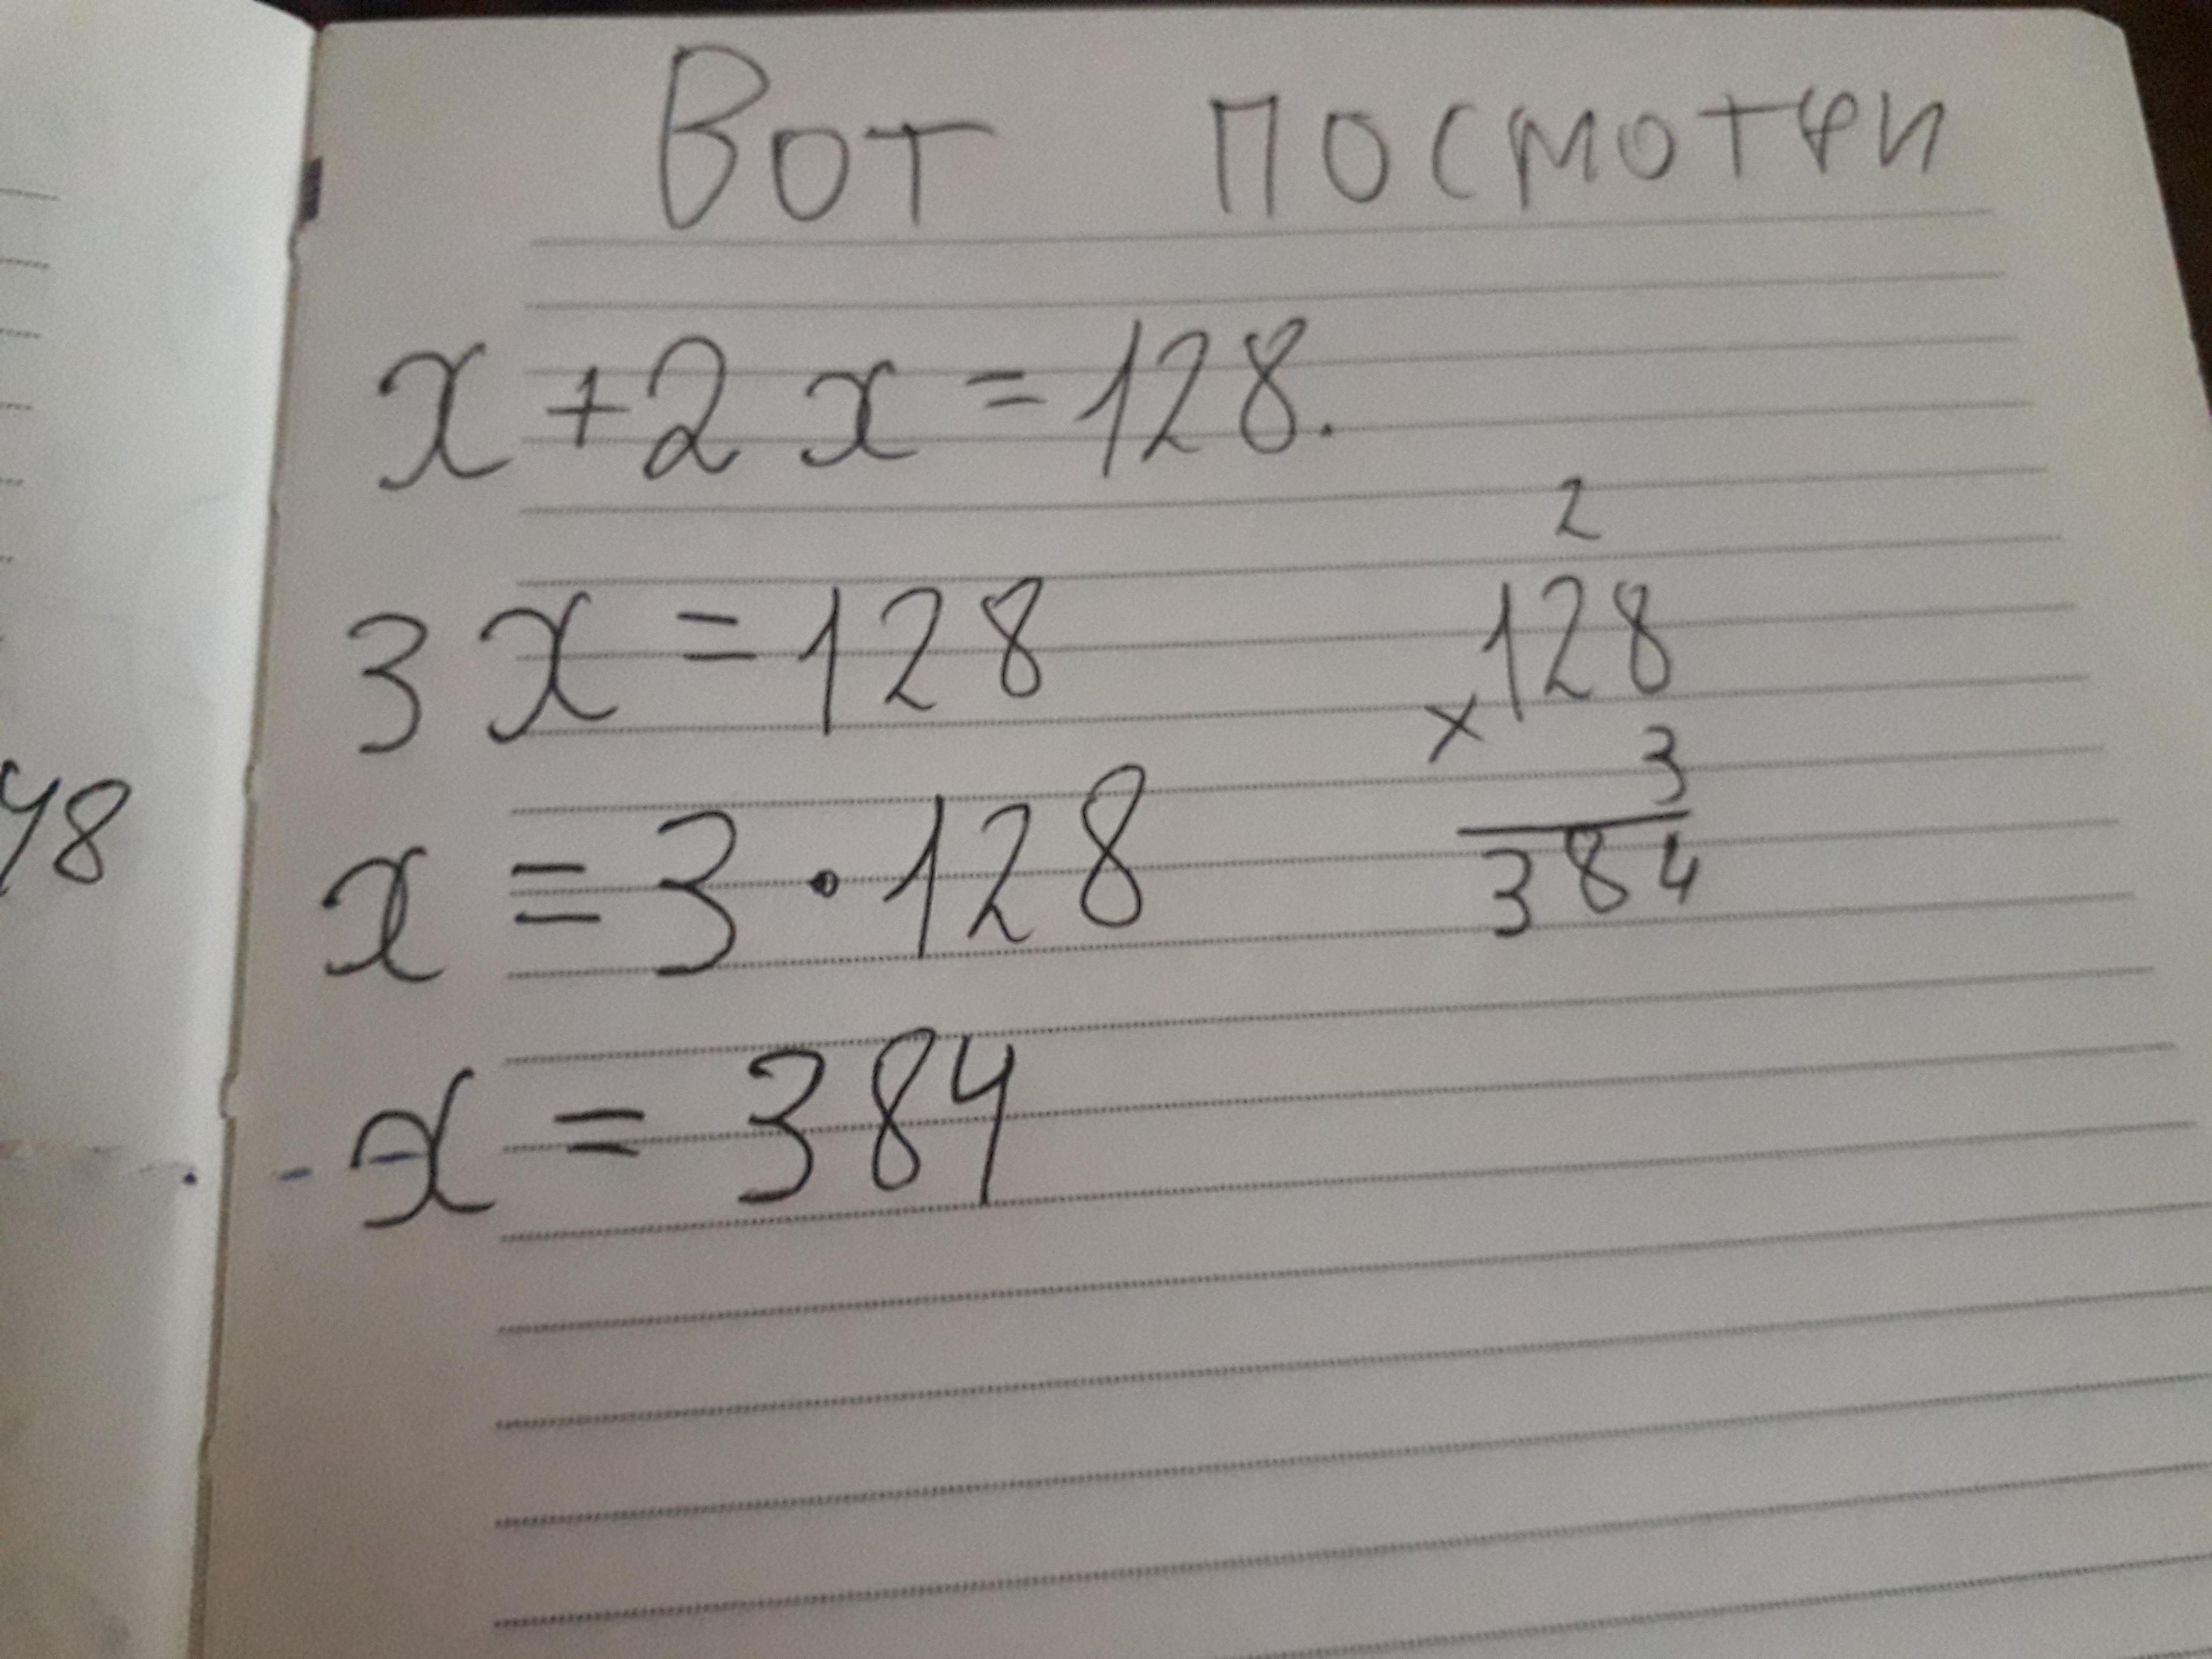 Вот посмотри
x + 2x = 128.
3x = 128
x = 3 · 128
x = 384
2
128
× 3
384
48